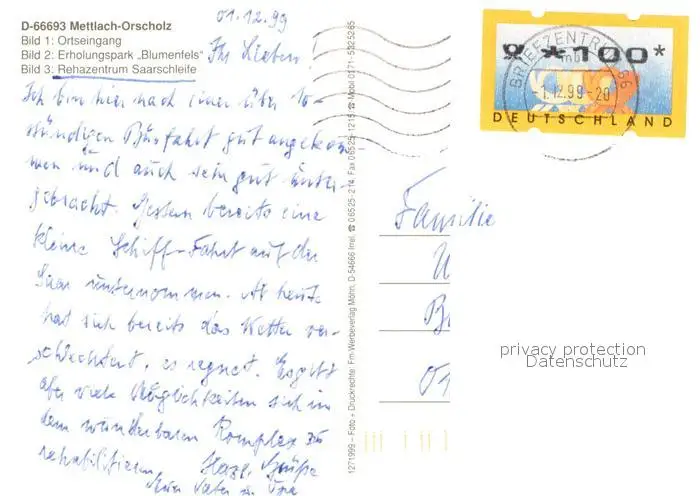 01.12.99
D-66693 Mettlach-Orscholz
Bild 1: Ortseingang
Bild 2: Erholungspark „Blumenfels"
Bild 3: Rehazentrum Saarschleife
Ihr Lieben!
Ich bin hier nach einer über 10-
stündigen Busfahrt gut angekom
men und auch sehr gut unter-
gebracht. Gestern bereits eine
kleine Schiff-Fahrt auf der
Saar unternommen. Ab heute
hat sich bereits das Wetter ver-
schlechtert, es regnet. Es gibt
aber viele Möglichkeiten sich in
dem wunderbaren Komplex zu
rehabilitieren. Herzl. Grüße
Euer Vater u. Opa
1271999 – Foto + Druckrechte: Fm-Werbeverlag Möhn, D-54666 Irrel, ☎ 06525-214, Fax 06525-1215 ☎ Mobil 0171-5325265
*100*
BRIEFZENTRUM 66
mb
-1.12.99-20
DEUTSCHLAND
Familie
privacy protection
Datenschutz